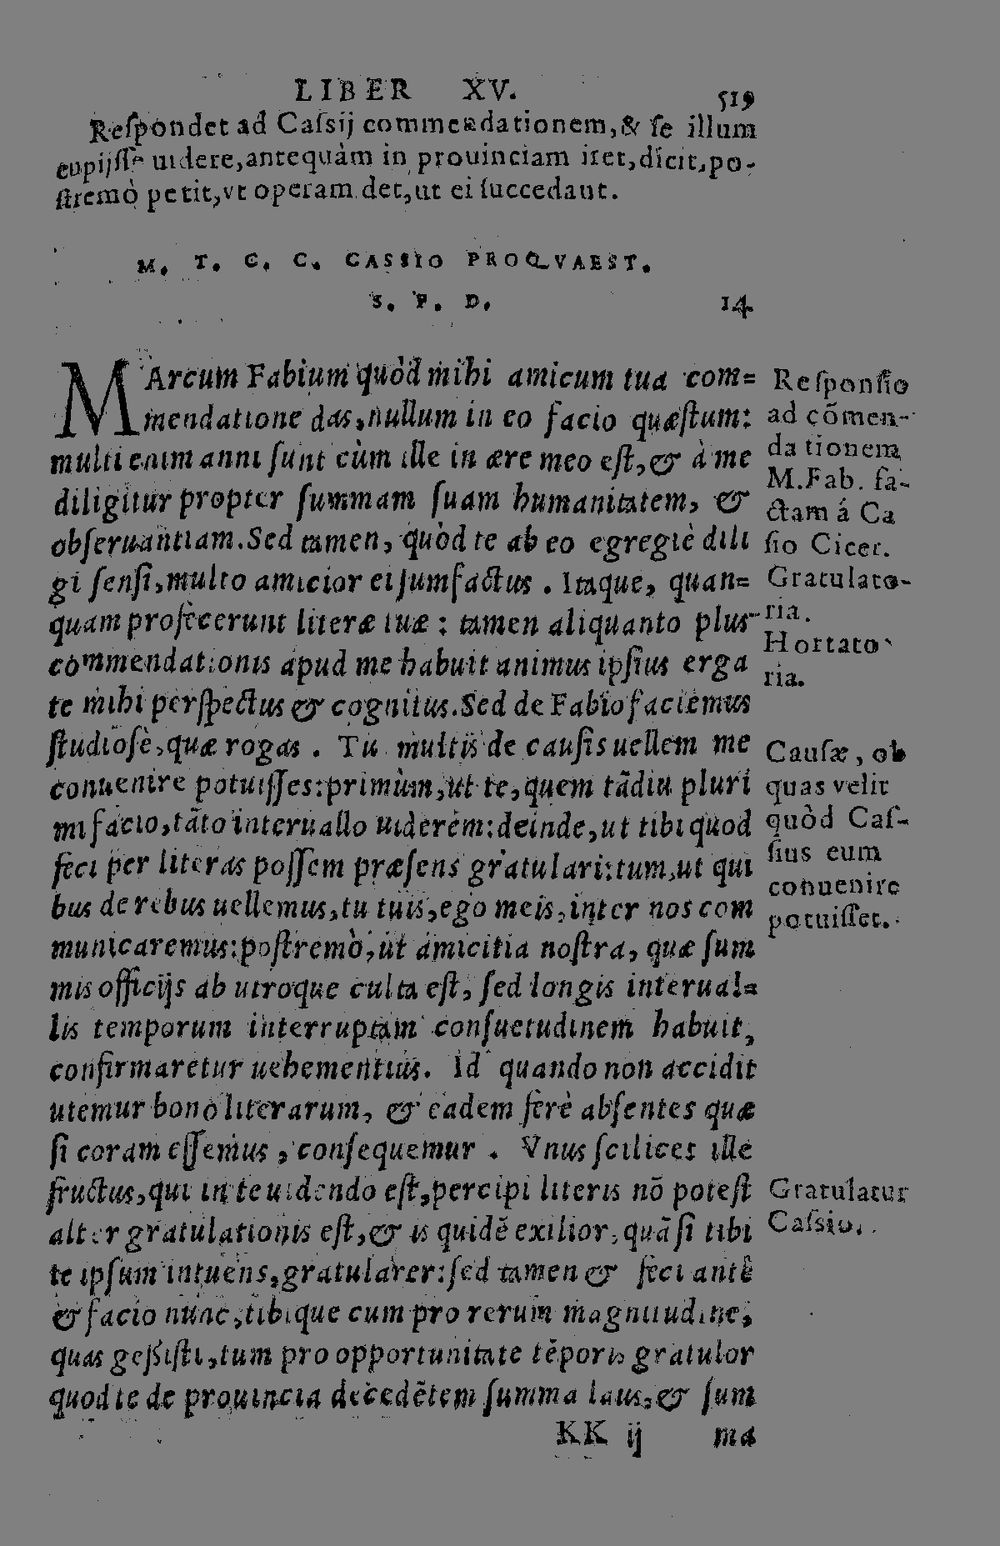 LIBER XV. 519
Reſpondet ad Caſsij commendationem, & ſe illum
cupijſſe uidere, antequàm in prouinciam iret, dicit, po-
ſtremò petit, vt operam det, ut ei ſuccedaut.
M. T. C. C. CASSIO PROQVAEST.
S. P. D. 14
MArcum Fabium quòd mihi amicum tua com=
mendatione das, nullum in eo facio quæſtum:
multi enim anni ſunt cùm ille in ære meo eſt, & à me
diligitur propter ſummam ſuam humanitatem, &
obſeruantiam. Sed tamen, quòd te ab eo egregiè dili
gi ſenſi, multo amicior ei ſum factus. Itaque, quan=
quam profecerunt literæ tuæ: tamen aliquanto plus
commendationis apud me habuit animus ipſius erga
te mihi perſpectus & cognitus. Sed de Fabio faciemus
ſtudioſè, quæ rogas. Tu multis de cauſis uellem me
conuenire potuiſſes: primùm, ut te, quem tãdiu pluri
mi facio, tãto interuallo uiderem: deinde, ut tibi quod
feci per literas poſſem præſens gratulari: tum, ut qui
bus de rebus uellemus, tu tuis, ego meis, inter nos com
municaremus: poſtremò, ut amicitia noſtra, quæ ſum
mis officijs ab utroque culta eſt, ſed longis interual=
lis temporum interruptam conſuetudinem habuit,
confirmaretur uehementius. Id quando non accidit
utemur bono literarum, & eadem ferè abſentes quæ
ſi coram eſſemus, conſequemur. Vnus ſcilicet ille
fructus, qui in te uidendo eſt, percipi literis nõ poteſt
alter gratulationis eſt, & is quidẽ exilior, quã ſi tibi
te ipſum intuens, gratularer: ſed tamen & feci antè
& facio nunc, tibique cum pro rerum magnitudine,
quas geßiſti, tum pro opportunitate tẽporis gratulor
quod te de prouincia decedẽtem ſumma laus, & ſum
KK ij ma
Reſponſio
ad cõmen-
dationem
M. Fab. fa-
ctam á Ca
ſio Cicer.
Gratulato-
ria.
Hortato
ria.
Cauſæ, ob
quas velit
quòd Caſ-
ſius eum
conuenire
potuiſſet.
Gratulatur
Caſsio.